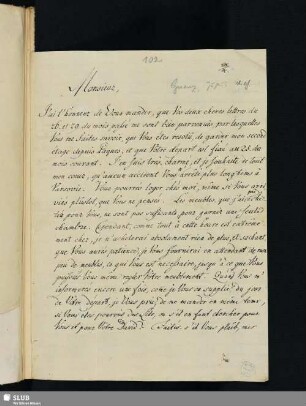 102.
Monsieur,
J'ai l'honneur de Vous mander, que Vos deux cheres lettres du
26. et 29. du mois passé me sont bien parvenues, par lesquelles
Vous me faites savoir, que Vous êtes resolu, de garnir mon second
étage depuis Paques, et que Vôtre depart est fixé au 23. du
mois courant. J'en suis très charmé, et je souhaite de tout
mon coeur, qu'aucun accident Vous arrête plus longtems à
Varsovie. Vous pourrés loger chez moi, même si Vous arri-
viés plutôt, que Vous ne pensés. Les meubles, que j'ai
pour Vous, ne sont pas suffisants pour garnir une seule
chambre. Cependant, comme tout à cette heure est extrème-
ment cher, je n'acheterai absolument rien de plus, et sachant
que Vous aurés patience, je Vous fournirai en attendant de mon
peu de meubles, ce qui Vous est necessaire, jusqu'à ce que Vous
puissiés Vous même regler Vôtre meublement. Quand Vous m'
informerés encore une fois, come je Vous en supplie, du jour
de Vôtre depart, je Vous prie, de me mander en même tems,
si Vous êtes pourvus des lits, ou s'il en faut chercher pour
Vous et pour Vôtre David. Faites, s'il Vous plait, mes
SLUB